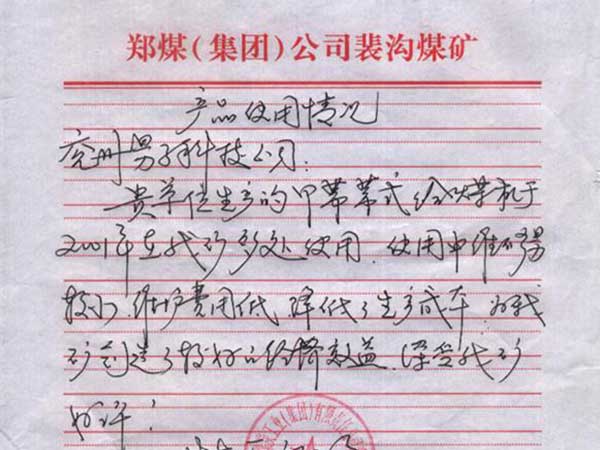 郑煤(集团)公司裴沟煤矿
产品使用情况
兖州男子科技公司:
贵单位生产的甲带带式给煤机于
2001年在我矿多处使用.使用中维
较小.维护费用低.降低了生产成本.为我
矿创造了较好的经济效益.深受我矿
好评!
工业(集团)有限责任